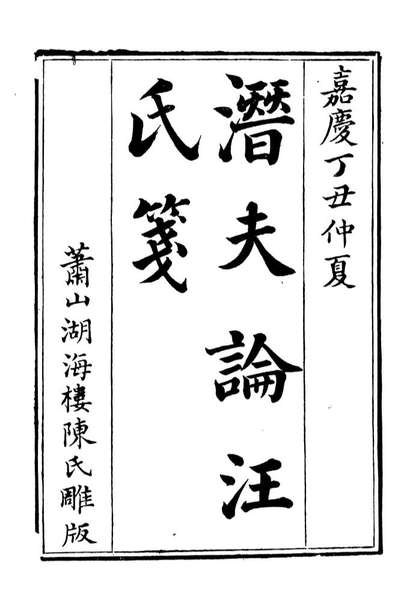 嘉慶丁丑仲夏
潛夫論汪
氏箋
蕭山湖海樓陳氏雕版